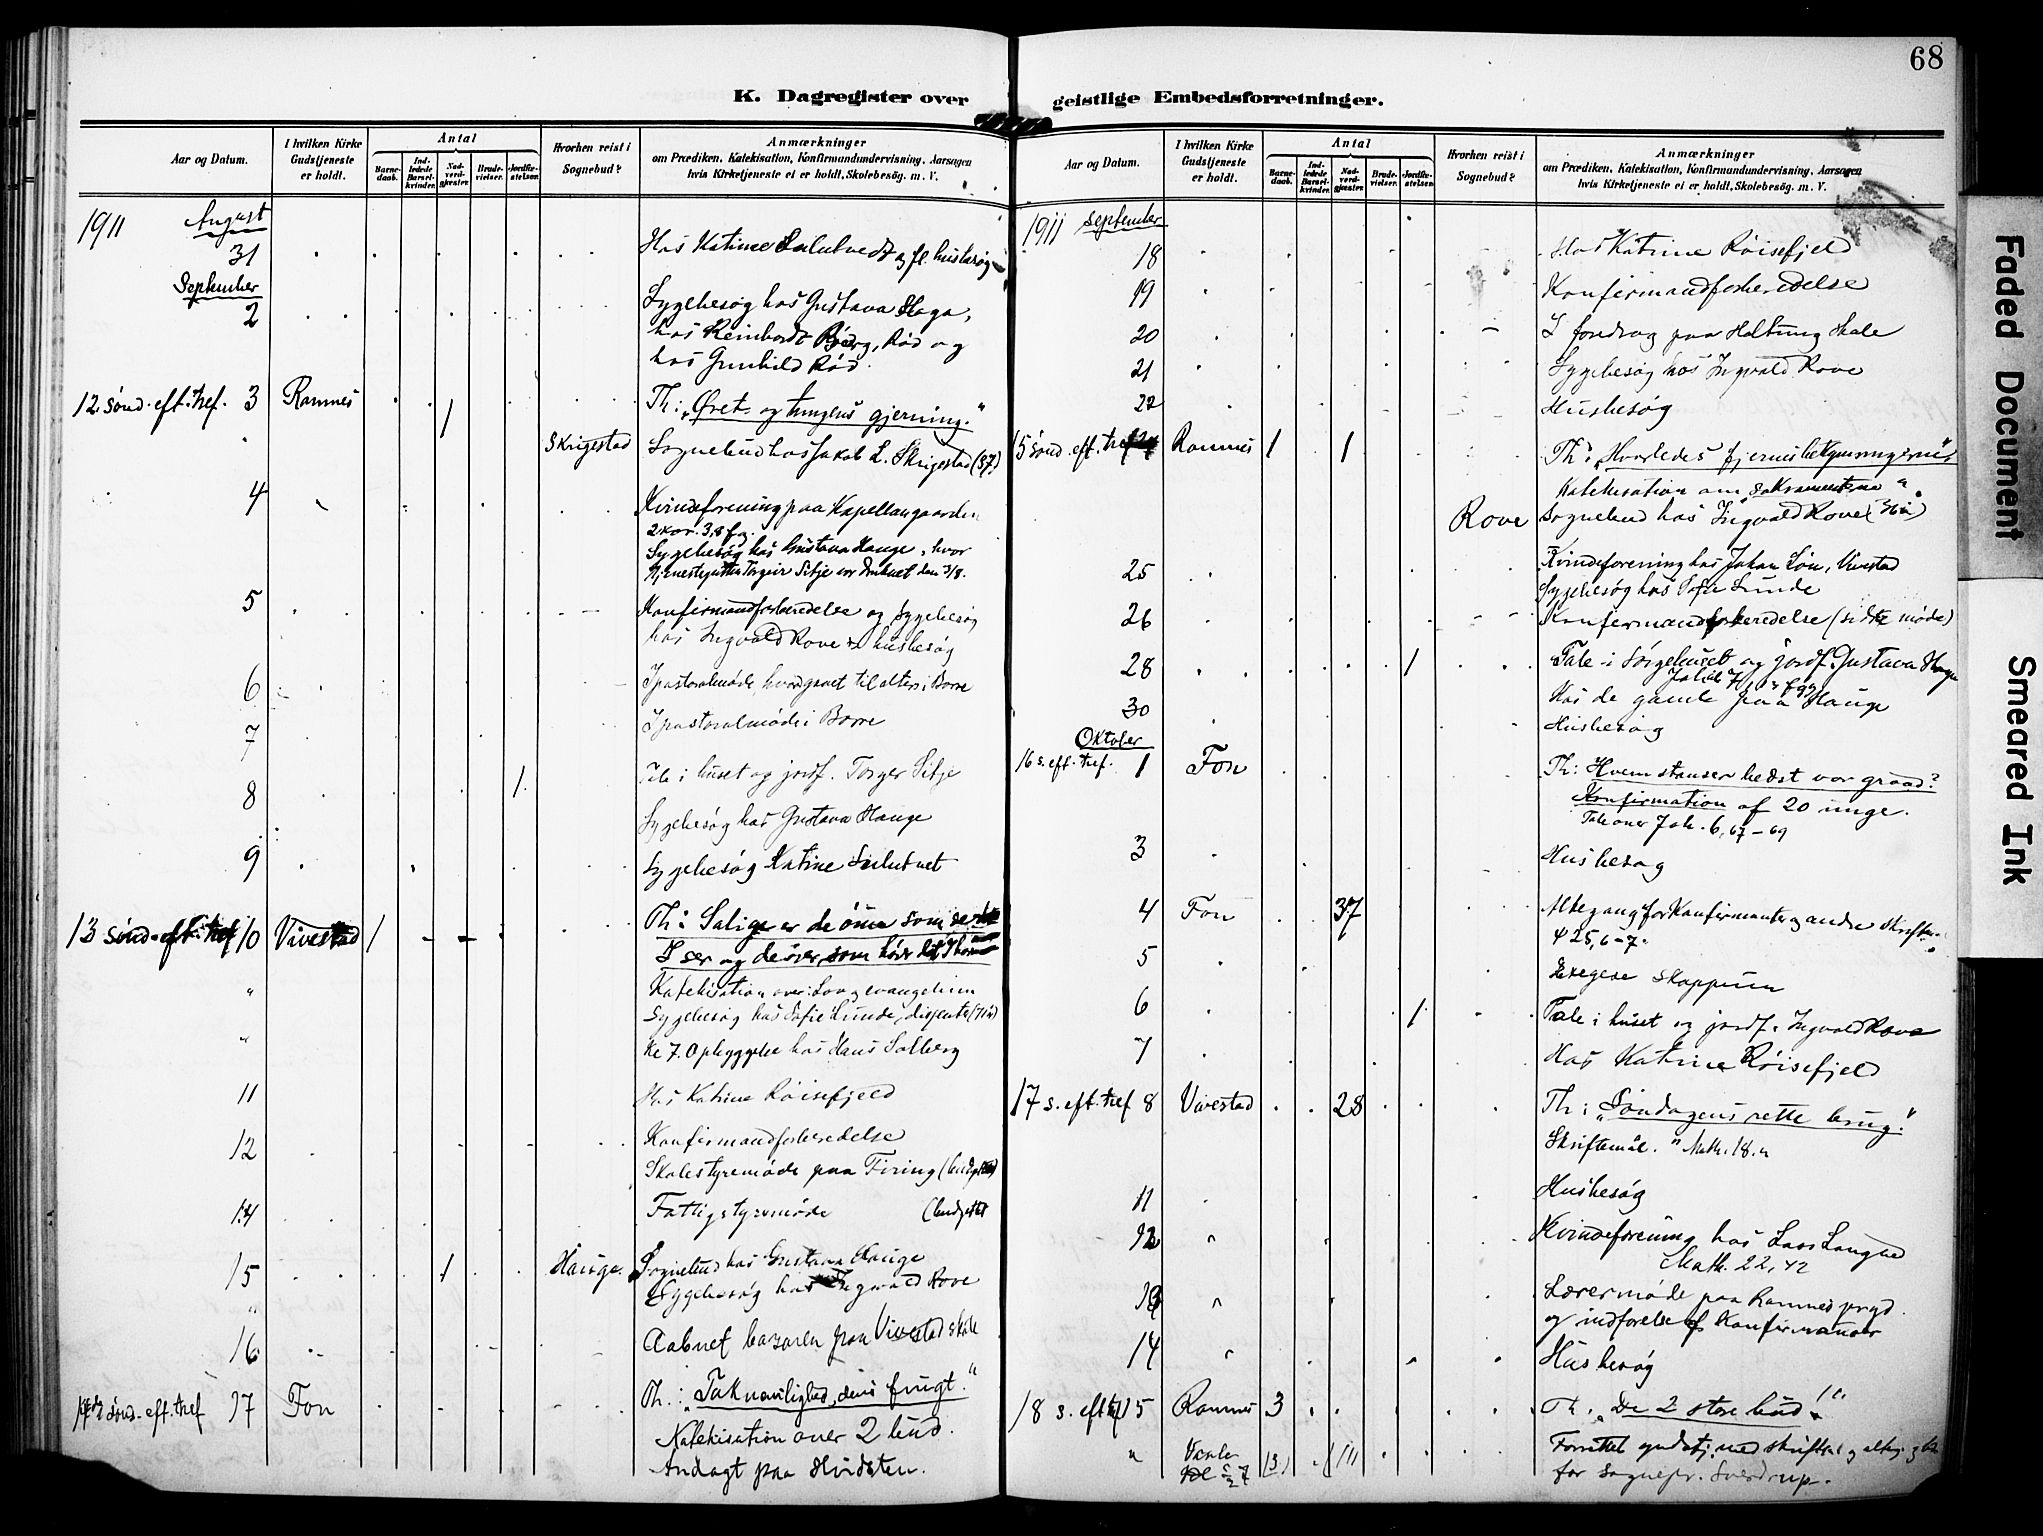 68
K. Dagregister over
Aar og Datum.
I hvilken Kirke Gudstjeneste er holdt.
Antal
Barne-daab.
Ind-ledede Barsel-kvinder.
Nad-verd-gjester.
Brude-vielser.
Jordfæ-stelser.
Hvorhen reist i Sognebud?
Anmærkninger
om Prædiken, Katekisation, Konfirmandundervisning, Aarsagen
hvis Kirketjeneste ei er holdt, Skolebesøg. m. V.
1911 August
31 Hos Katinee og fl. husbesøg
September
2 Sygebesøg hos Gustava Haga,
hos Reinhardt Bjerg, Rød og
hos Gunhild Rød.
12. sønd. eft. tref. 3 Ramnes 1 Th: "Øret og tungens gjerning."
Skrigestad Sognebud hos Jakob L. Skrigestad (87)
4 Kvindeforening paa Kapellangaarden
2 Kor. 3,
Sygebesøg hos Gustava Hauge, hvor
Torgeir Sitje var druknet den 3/8.
5 Konfirmandforberedelse og Sygebesøg
hos Ingvald Rove & husbesøg
6 I pastoralmøde hvorgaaet til alters i Borre
7 I pastoralmøde i Borre
8 1 Tale i huset og jordf. Torger Sitje
Sygebesøg hos Gustava Hauge
9 Sygebesøg Katine
13 sønd. eft. tref 10 Vivestad 1 Th: Salige er de øine som se det
I ser og de ører, som hører det, I hører
" Katekisation over: Lov og evangelium
Sygebesøg hos Sofie Lunde, (71 a)
" Kl 7. Opbyggelse hos Hans Solberg
11 Hos Katrine Røisefjeld
12 Konfirmandforberedelse
Skolestyremøde paa Firing (budgettet)
14 Fattigstyremøde (budgettet
15 1 Hauge. Sognebud hos Gustava Hauge
" Sygebesøg hos Ingvald Rove
16 Aabnet bazaren paa Vivestad skole
14de sønd. eft. tref 17 Fon Th.: "Taknemlighed, dens frugt."
Katekisation over 2 bud.
Andagt paa Hvidsten.
geistlige Embedsforretninger.
Aar og Datum.
I hvilken Kirke Gudstjeneste er holdt.
Antal
Barne-daab.
Ind-ledede Barsel-kvinder.
Nad-verd-gjester.
Brude-vielser.
Jordfæ-stelser.
Hvorhen reist i Sognebud?
Anmærkninger
om Prædiken, Katekisation, Konfirmandundervisning, Aarsagen
hvis Kirketjeneste ei er holdt, Skolebesøg. m. V.
1911 September
18 Hos Katrine Røisefjeld
19 Konfirmandforberedelse
20 I foredrag paa Holtung Skole
21 Sygebesøg hos Ingvald Rove
22 Husbesøg
15 sønd. eft. tref 24 Ramnes 1 1 Th: "Hvorledes fjernes bekymringerne"
Katekisation om "sakramenterne".
Rove Sognebud hos Ingvald Rove (36 a)
25 Kvindeforening hos Johan Løn, Vivestad
Sygebesøg hos Sofie Lunde
26 Konfirmandforberedelse (sidste møde)
28 1 Tale i Sørgehuset og jordf. Gustava Hauge
30 Hos de gamle paa Hauge
Husbesøg
Oktober
16 s. eft. tref. 1 Fon Th: Hvem stanser bedst vor graad?
Konfirmation af 20 unge.
Tale over Joh. 6, 67-69
3 Husbesøg
4 Fon 37 Altergang for Konfirmanter og andre
Ψ 25, 6-7.
5 Exegese Skoppum
6 1 Tale i huset og jordf. Ingvald Rove
7 Hos Katrine Røisefjeld
17 s. eft. tref 8 Vivestad 28 Th: "Søndagens rette brug."
Skriftemål. " Math. 18.
11 Husbesøg
12 " Kvindeforening hos Lars Langne
Math. 22, 42
13 " Lærermøde paa Ramnes prgd.
og indførelse af Konfirmander
14 " Husbesøg
18 s. eft. tref 15 Ramnes 3 Th. "De 2 store bud"
" Vaale (3) Forrettet gudstj. med skriftem. og alterg.
for sognepr. Sverdrup.
Faded Document
Smeared Ink